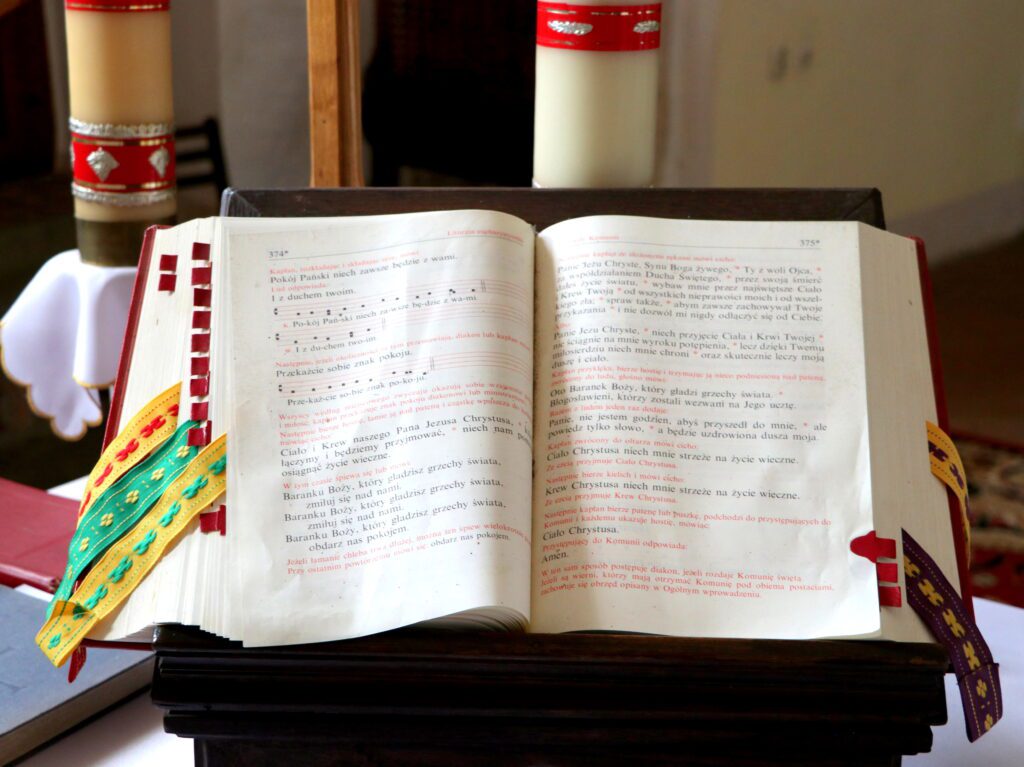 374*
Kapłan, rozkładając i składając ręce, mówi:
Pokój Pański niech zawsze będzie z wami.
Lud odpowiada:
I z duchem twoim.
K. Po-kój Pań-ski niech za-wsze bę-dzie z wa-mi.
W. I z du-chem two-im.
Następnie, jeżeli okoliczności za tym przemawiają, diakon lub kapłan
Przekażcie sobie znak pokoju.
Prze-każ-cie so-bie znak po-ko-ju.
Wszyscy według miejscowego zwyczaju okazują sobie wzajemnie
i miłość, kapłan przekazuje znak pokoju diakonowi lub ministrantowi.
Następnie bierze hostię, łamie ją nad pateną i cząstkę wpuszcza do
mówiąc cicho:
Ciało i Krew naszego Pana Jezusa Chrystusa,
łączymy i będziemy przyjmować, * niech nam pomogą
osiągnąć życie wieczne.
W tym czasie śpiewa się lub mówi:
Baranku Boży, który gładzisz grzechy świata,
zmiłuj się nad nami.
Baranku Boży, który gładzisz grzechy świata,
zmiłuj się nad nami.
Baranku Boży, który gładzisz grzechy świata,
obdarz nas pokojem.
Jeżeli łamanie chleba trwa dłużej, można ten śpiew wielokrotnie
Przy ostatnim powtórzeniu mówi się: obdarz nas pokojem.
Komunii
375*
Następnie kapłan ze złożonymi rękami mówi cicho:
Panie Jezu Chryste, Synu Boga żywego, * Ty z woli Ojca, *
za współdziałaniem Ducha Świętego, * przez swoją śmierć
dałeś życie światu, * wybaw mnie przez najświętsze Ciało
i Krew Twoją * od wszystkich nieprawości moich i od wszel-
kiego zła; * spraw także, * abym zawsze zachowywał Twoje
przykazania * i nie dozwól mi nigdy odłączyć się od Ciebie.
Albo:
Panie Jezu Chryste, * niech przyjęcie Ciała i Krwi Twojej *
nie ściągnie na mnie wyroku potępienia, * lecz dzięki Twemu
miłosierdziu niech mnie chroni * oraz skutecznie leczy moją
duszę i ciało.
Kapłan przyklęka, bierze hostię i trzymając ją nieco podniesioną nad pateną,
zwrócony do ludu, głośno mówi:
Oto Baranek Boży, który gładzi grzechy świata. *
Błogosławieni, którzy zostali wezwani na Jego ucztę.
Razem z ludem jeden raz dodaje:
Panie, nie jestem godzien, abyś przyszedł do mnie, * ale
powiedz tylko słowo, * a będzie uzdrowiona dusza moja.
Kapłan zwrócony do ołtarza mówi cicho:
Ciało Chrystusa niech mnie strzeże na życie wieczne.
Ze czcią przyjmuje Ciało Chrystusa.
Następnie bierze kielich i mówi cicho:
Krew Chrystusa niech mnie strzeże na życie wieczne.
Ze czcią przyjmuje Krew Chrystusa.
Następnie kapłan bierze patenę lub puszkę, podchodzi do przystępujących do
Komunii i każdemu ukazuje hostię, mówiąc:
Ciało Chrystusa.
Przystępujący do Komunii odpowiada:
Amen.
W ten sam sposób postępuje diakon, jeżeli rozdaje Komunię świętą.
Jeżeli są wierni, którzy mają otrzymać Komunię pod obiema postaciami,
zachowuje się obrzęd opisany w Ogólnym wprowadzeniu.